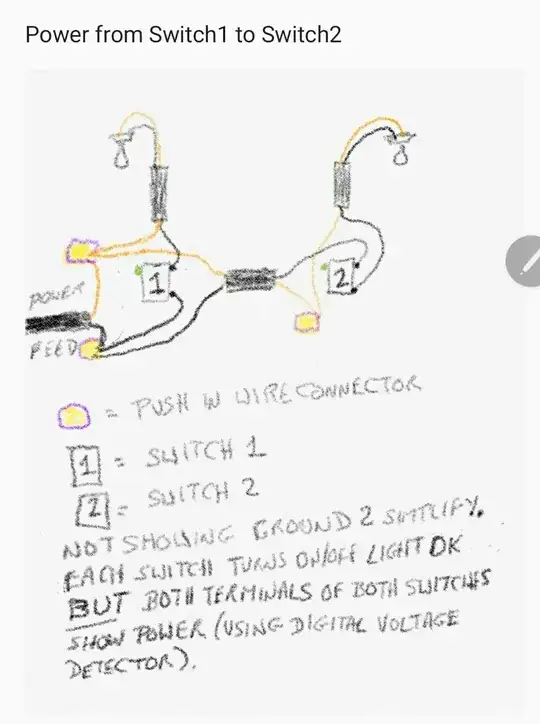 Power from Switch1 to Switch2
1
2
POWER
FEED
= PUSH IN WIRE CONNECTOR
1 = SWITCH 1
2 = SWITCH 2
NOT SHOWING GROUND 2 SIMPLIFY.
EACH SWITCH TURNS ON/OFF LIGHT OK
BUT BOTH TERMINALS OF BOTH SWITCHES
SHOW POWER (USING DIGITAL VOLTAGE
DETECTOR).